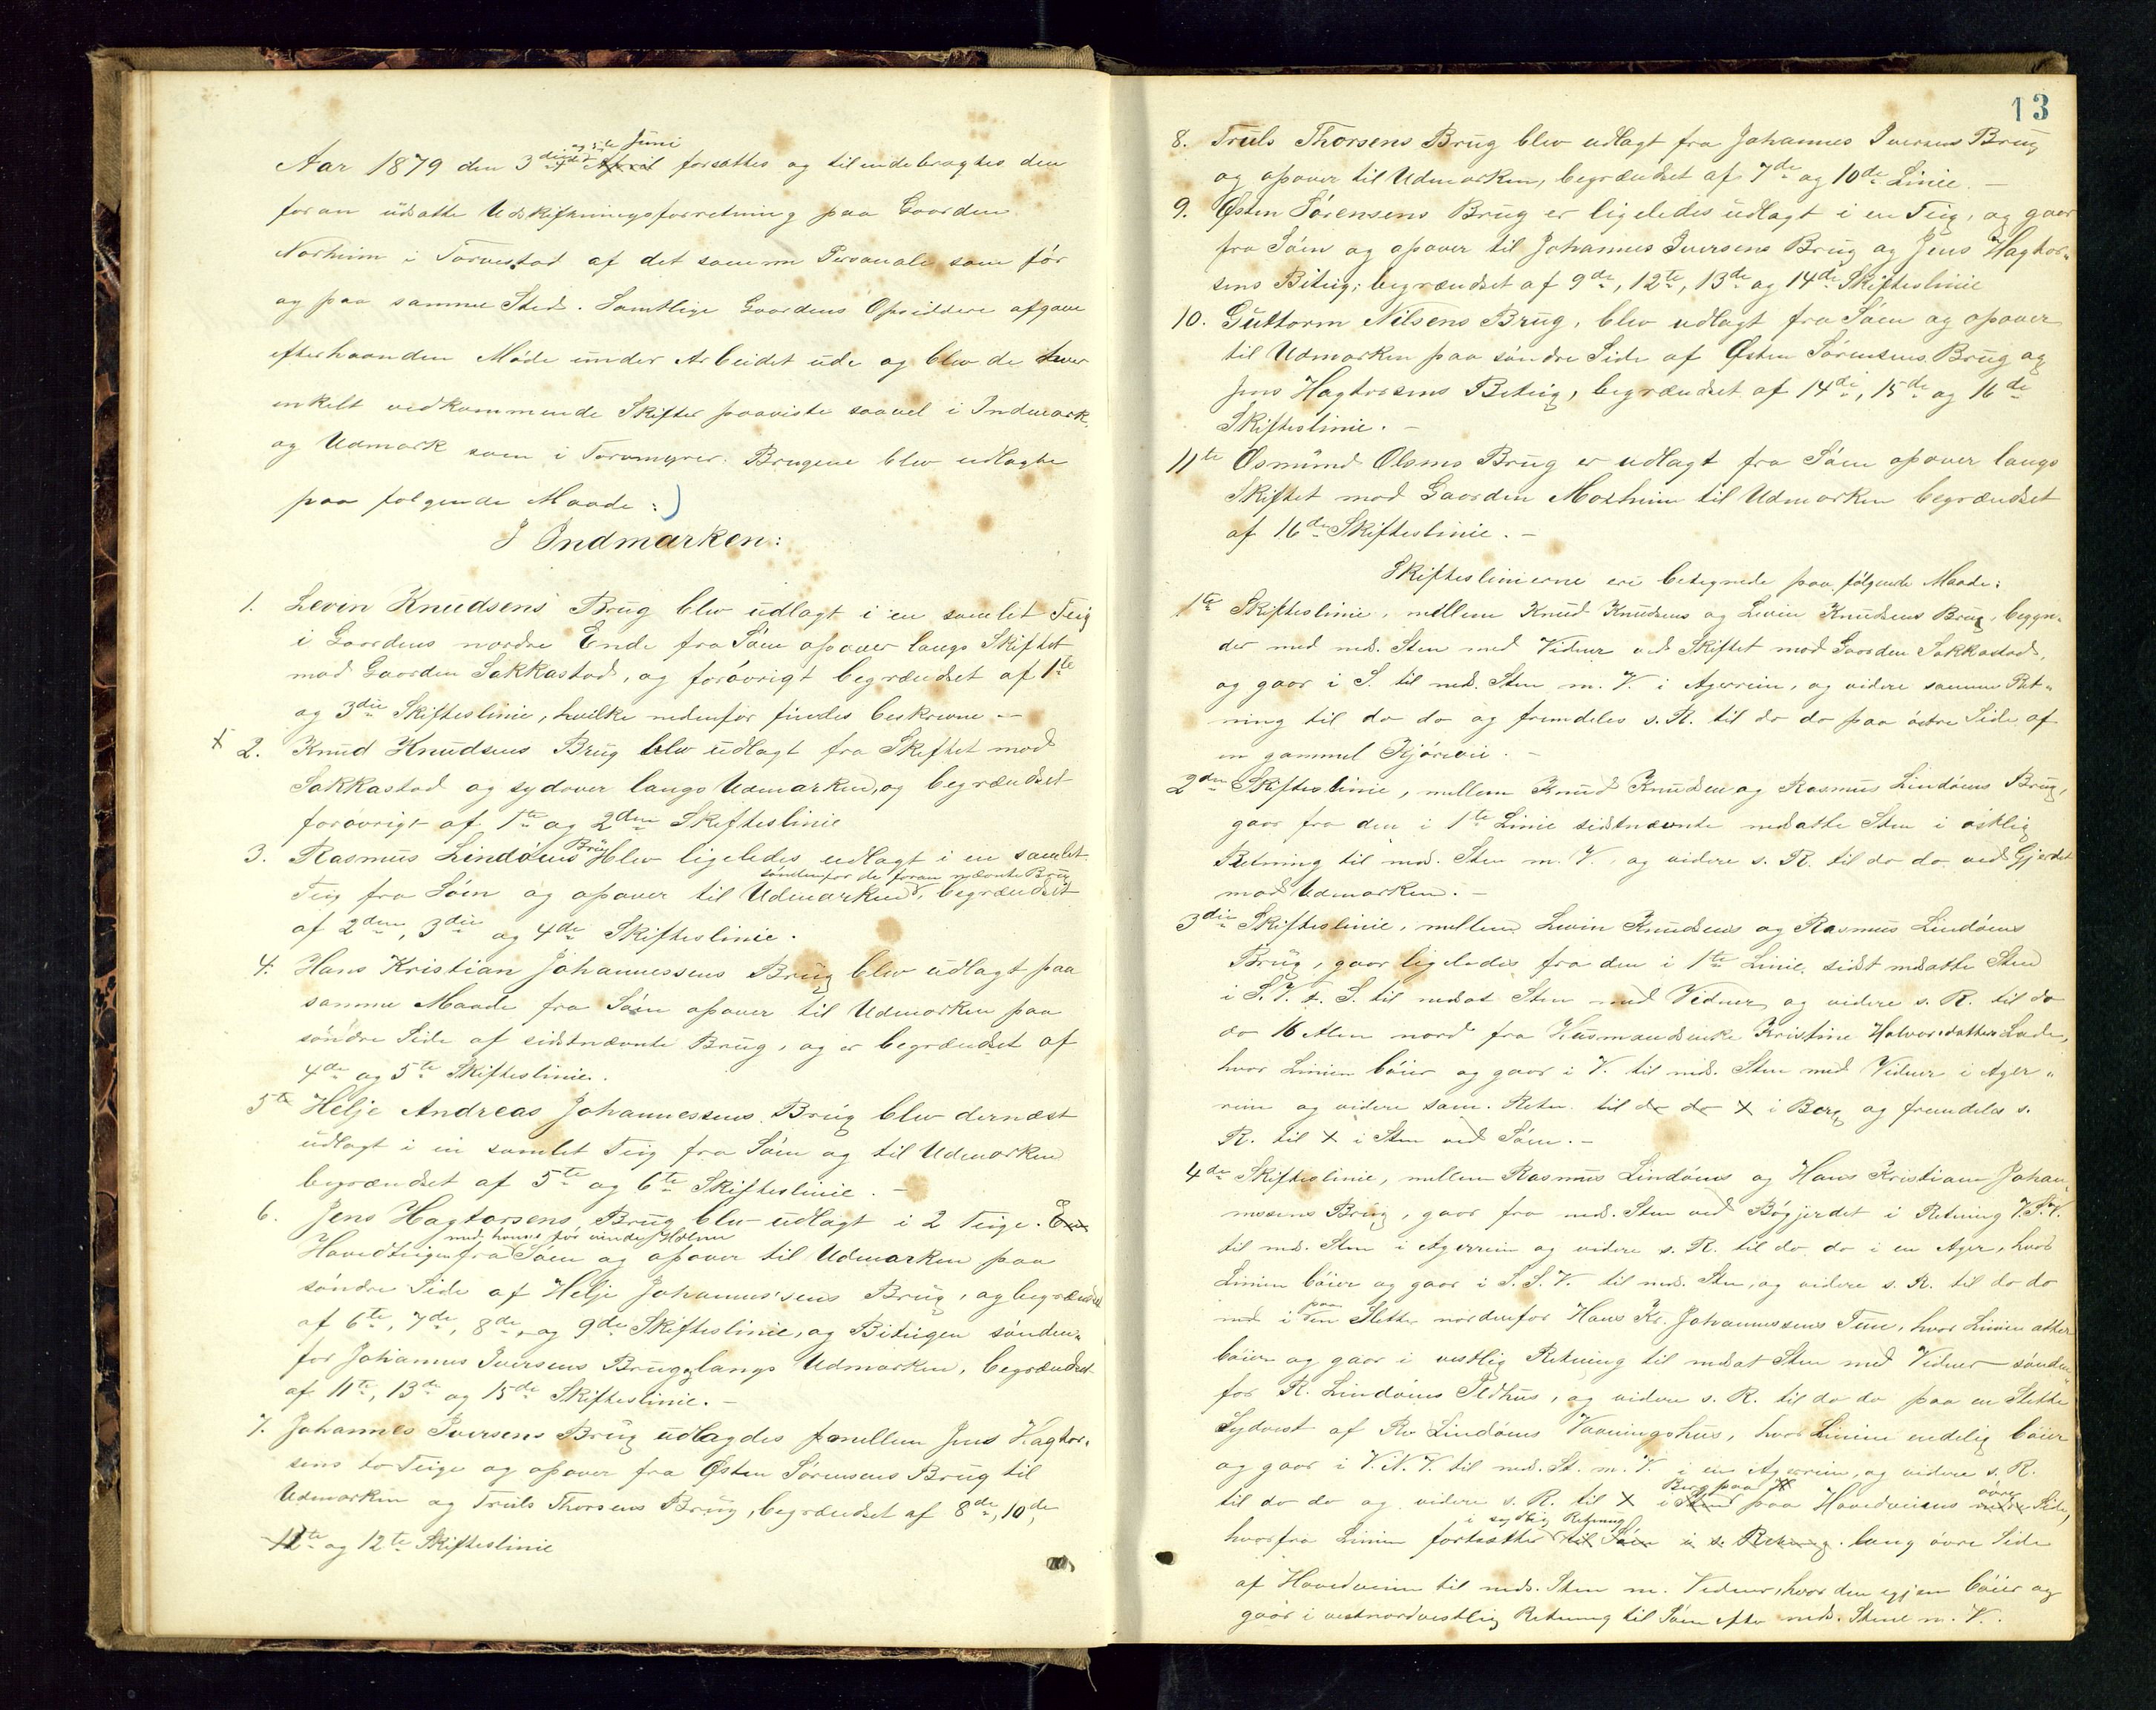 Aar 1879 den 3die og 5te Juni forsattes og tilendebragtes den
foran udsatte Udskiftningsforretning paa Gaarden
Norheim i Torvestad af det samme Personale som før
og paa samme Sted. Samtlige Gaardens Opsiddere afgave
efterhaanden Møde under Arbeidet ude og blev de hver
enkelt vedkommende Skifter paaviste saavel i Indmark
og Udmark som i Torvmyrer. Brugene blev udlagte
paa følgende Maade:
I Indmarken:
1. Levin Knudsens Brug blev udlagt i en samlet Teig
i Gaardens nordre Ende fra Søen opover langs Skiftet
mod Gaarden Sakkastad, og forøvrigt begrændset af 1te
og 3die Skifteslinie, hvilke nedenfor findes beskrevne —
x 2. Knud Knudsens Brug blev udlagt fra Skiftet mod
Sakkastad og sydover langs Udmarken, og begrændset
forøvrigt af 1te og 2den Skifteslinie
3. Rasmus Lindøens Brug blev ligeledes udlagt i en samlet
søndenfor de foran nævnte Brug
Teig fra Søen og opover til Udmarken, begrændset
af 2den, 3die og 4de Skifteslinie.
4. Hans Kristian Johannessens Brug blev udlagt paa
samme Maade fra Søen opover til Udmarken paa
søndre Side af sidstnævnte Brug, og er begrændset af
4de og 5te Skifteslinie.
5te Helje Andreas Johannessens Brug blev dernæst
udlagt i en samlet Teig fra Søen og til Udmarken
begrændset af 5te og 6te Skifteslinie. —
6. Jens Hagtorsens Brug blev udlagt i 2 Teige. En
med hans for Holme
Hovedteigen fra Søen og opover til Udmarken paa
søndre Side af Helje Johannes'sens Brug, og begrændset
af 6te, 7de, 8de, og 9de Skifteslinie, og Biteigen sønden-
for Johannes Iversens Brug langs Udmarken, begrændset
af 11te, 13de og 15de Skifteslinie. —
7. Johannes Iversens Brug udlagdes mellem Jens Hagtor-
sens to Teige og opover fra Østen Sørensens Brug til
Udmarken og Truls Thorsens Brug, begrændset af 8de, 10de,
11te og 12te Skifteslinie
13
8. Truls Thorsens Brug blev udlagt fra Johannes Iversens Brug
og opover til Udmarken, begrændset af 7de og 10de Linie. —
9. Østen Sørensens Brug er ligeledes udlagt i en Teig, og gaar
fra Søen og opover til Johannes Iversens Brug og Jens Hagtor-
sens Biteig; begrændset af 9de, 12te, 13de og 14de Skifteslinie
10. Guttorm Nilsens Brug, blev udlagt fra Søen og opover
til Udmarken paa søndre Side af Østen Sørensens Brug og
Jens Hagtorsens Biteig, begrændset af 14de, 15de og 16de
Skifteslinie. —
11te Osmund Olsens Brug er udlagt fra Søen opover langs
Skiftet mod Gaarden Moxheim til Udmarken begrændset
af 16de Skifteslinie. —
Skifteslinierne ere betegnede paa følgende Maade:
1te Skifteslinie, mellem Knud Knudsens og Levin Knudsens Brug, begyn-
der med neds. Sten med Vidner ved Skiftet mod Gaarden Sakkastad,
og gaar i S. til neds. Sten m. V. i Agerrein, og videre samme Ret-
ning til do do og fremdeles s. R. til do do paa østre Side af
en gammel Kjørevei. —
2den Skifteslinie, mellem Knud Knudsen og Rasmus Lindøens Brug,
gaar fra den i 1te Linie sidstnævnte nedsatte Sten i østlig
Retning til neds. Sten m. V., og videre s. R. til do do ved Gjerdet
mod Udmarken. —
3die Skifteslinie, mellem Levin Knudsens og Rasmus Lindøens
Brug, gaar ligeledes fra den i 1te Linie sidst nedsatte Sten
i S. V. t. S. til nedsat Sten med Vidner, og videre s. R. til do
do 16 Alen nord fra Husmandsenke Kristine Halvorsdatters Lade,
hvor Linien bøier og gaar i V. til neds. Sten med Vidner i Ager-
rein og videre sam. Retn. til do do x i Berg og fremdeles s.
R. til x i Sten ved Søen. —
4de Skifteslinie, mellem Rasmus Lindøens og Hans Kristian Johan-
nessens Brug, gaar fra neds. Sten ved Bøgjerdet i Retning V.S.V.
til neds. Sten i Agerrein og videre s. R. til do do i en Ager, hvor
Linien bøier og gaar i S. S. V. til neds. Sten, og videre s. R. til do do
ned i paa en Slette nordenfor Hans Kr. Johannessens Tun, hvor Linien atter
bøier og gaar i vestlig Retning til nedsat Sten med Vidner sønden-
for R. Lindøens Ildhus, og videre s. R. til do do paa en Slette
Sydvest af R. Lindøens Vaaningshus, hvor Linien endelig bøier
og gaar i V. N. V. til neds. St. m. V. i en Agerrein, og videre s. R.
Berg paa øvre
til do do og videre s. R. til x i Sten paa Hovedveiens nedre Side,
i sydlig Retning
hvorfra Linien fortsætter til Søen i s. Retning. lang øvre Side
af Hovedveien til neds. Sten m. Vidner, hvor den igjen bøier og
gaar i vestnordvestlig Retning til Søen efter neds. Stene m. V.